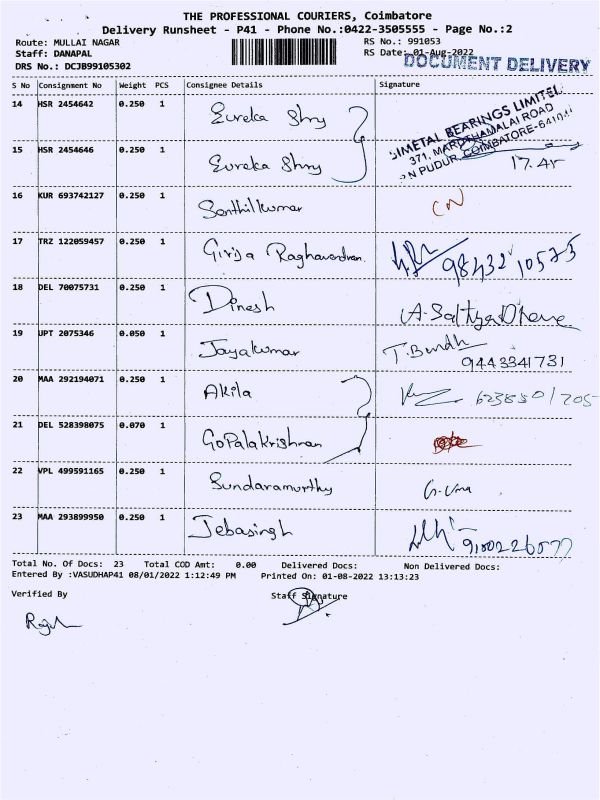 THE PROFESSIONAL COURIERS, Coimbatore
Delivery Runsheet - P41 - Phone No.:0422-3505555 - Page No.:2
Route: MULLAI NAGAR RS No.: 991053
Staff: DANAPAL RS Date: 01-Aug-2022
DOCUMENT DELIVERY
DRS No.: DCJB99105302
S No Consignment No Weight PCS Consignee Details Signature
14 HSR 2454642 0.250 1 Eureka Shry
BIMETAL BEARINGS LIMITED
371, MARUTHAMALAI ROAD
COIMBATORE-641041
15 HSR 2454646 0.250 1 Eureka Shry 17.45
16 KUR 693742127 0.250 1 Senthilkumar CN
17 TRZ 122059457 0.250 1 Girija Raghavendran. 98432 10575
18 DEL 70075731 0.250 1 Dinesh
19 UPT 2075346 0.050 1 Jayakumar 9443341731
20 MAA 292194071 0.250 1 Akila
21 DEL 528398075 0.070 1 Gopalakrishnan
22 VPL 499591165 0.250 1 Sundaramurthy G. Uma
23 MAA 293899950 0.250 1 Jebasingh
Total No. Of Docs: 23 Total COD Amt: 0.00 Delivered Docs: Non Delivered Docs:
Entered By :VASUDHAP41 08/01/2022 1:12:49 PM Printed On: 01-08-2022 13:13:23
Verified By Staff Signature